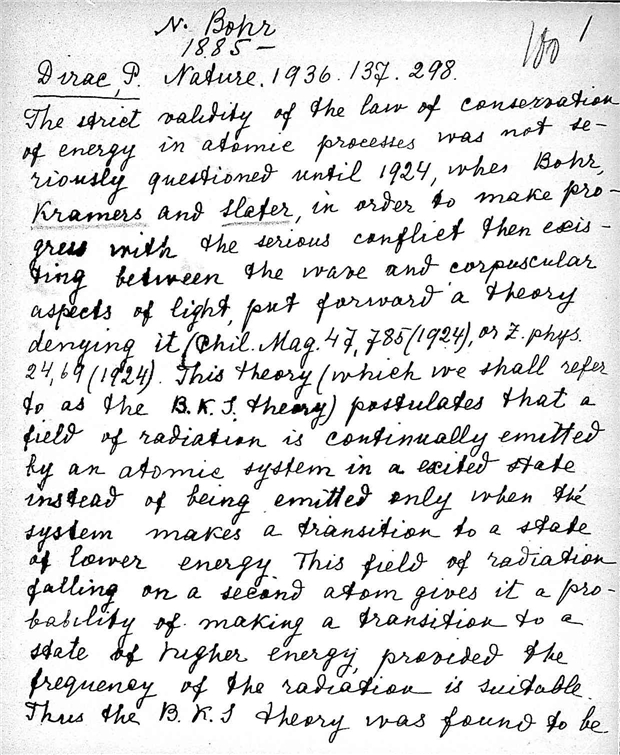 N. Bohr
1885 –
100 1
Dirac, P. Nature. 1936. 137. 298.
The strict validity of the law of conservation
of energy in atomic processes was not se-
riously questioned until 1924, when Bohr,
Kramers and Slater, in order to make pro-
gress with the serious conflict then exis-
ting between the wave and corpuscular
aspects of light, put forward a theory
denying it (Phil. Mag. 47, 785 (1924), or Z. phys.
24, 69 (1924). This theory (which we shall refer
to as the B.K.S. theory) postulates that a
field of radiation is continually emitted
by an atomic system in a exited state
instead of being emitted only when the
system makes a transition to a state
of lower energy This field of radiation
falling on a second atom gives it a pro-
bability of making a transition to a
state of higher energy, provided the
frequency of the radiation is suitable.
Thus the B.K.S theory was found to be